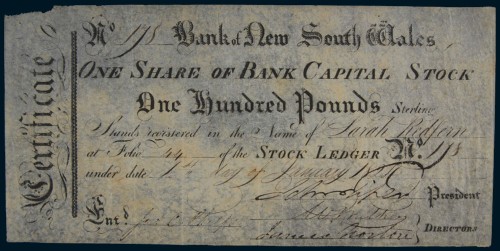 Certificate
No. 178 Bank of New South Wales
ONE SHARE OF BANK CAPITAL STOCK
One Hundred Pounds Sterling
Stands registered in the Name of Sarah Redfern
at Folio 44 of the STOCK LEDGER No. 178
under date 1st day of January
President
Ent'd
DIRECTORS